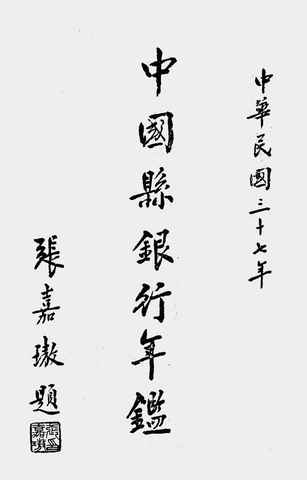 中華民國三十七年
中國縣銀行年鑑
張嘉璈題